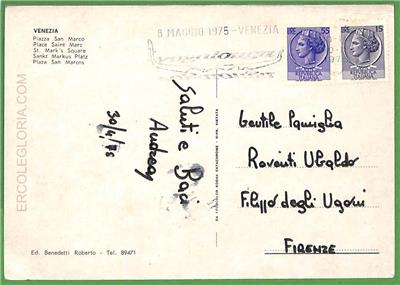 VENEZIA
Piazza San Marco
Place Saint Marc
St. Mark's Square
Sankt Markus Platz
Plaza San Marcos
8 MAGGIO 1975 - VENEZIA
55
15
ERCOLEGLORIA.COM
Saluti e Baci
Andrea
30/4/75
Gentile Famiglia
Roventi Ubaldo
Filippo degli Ugoni
FIRENZE
Ed. Benedetti Roberto - Tel. 89471